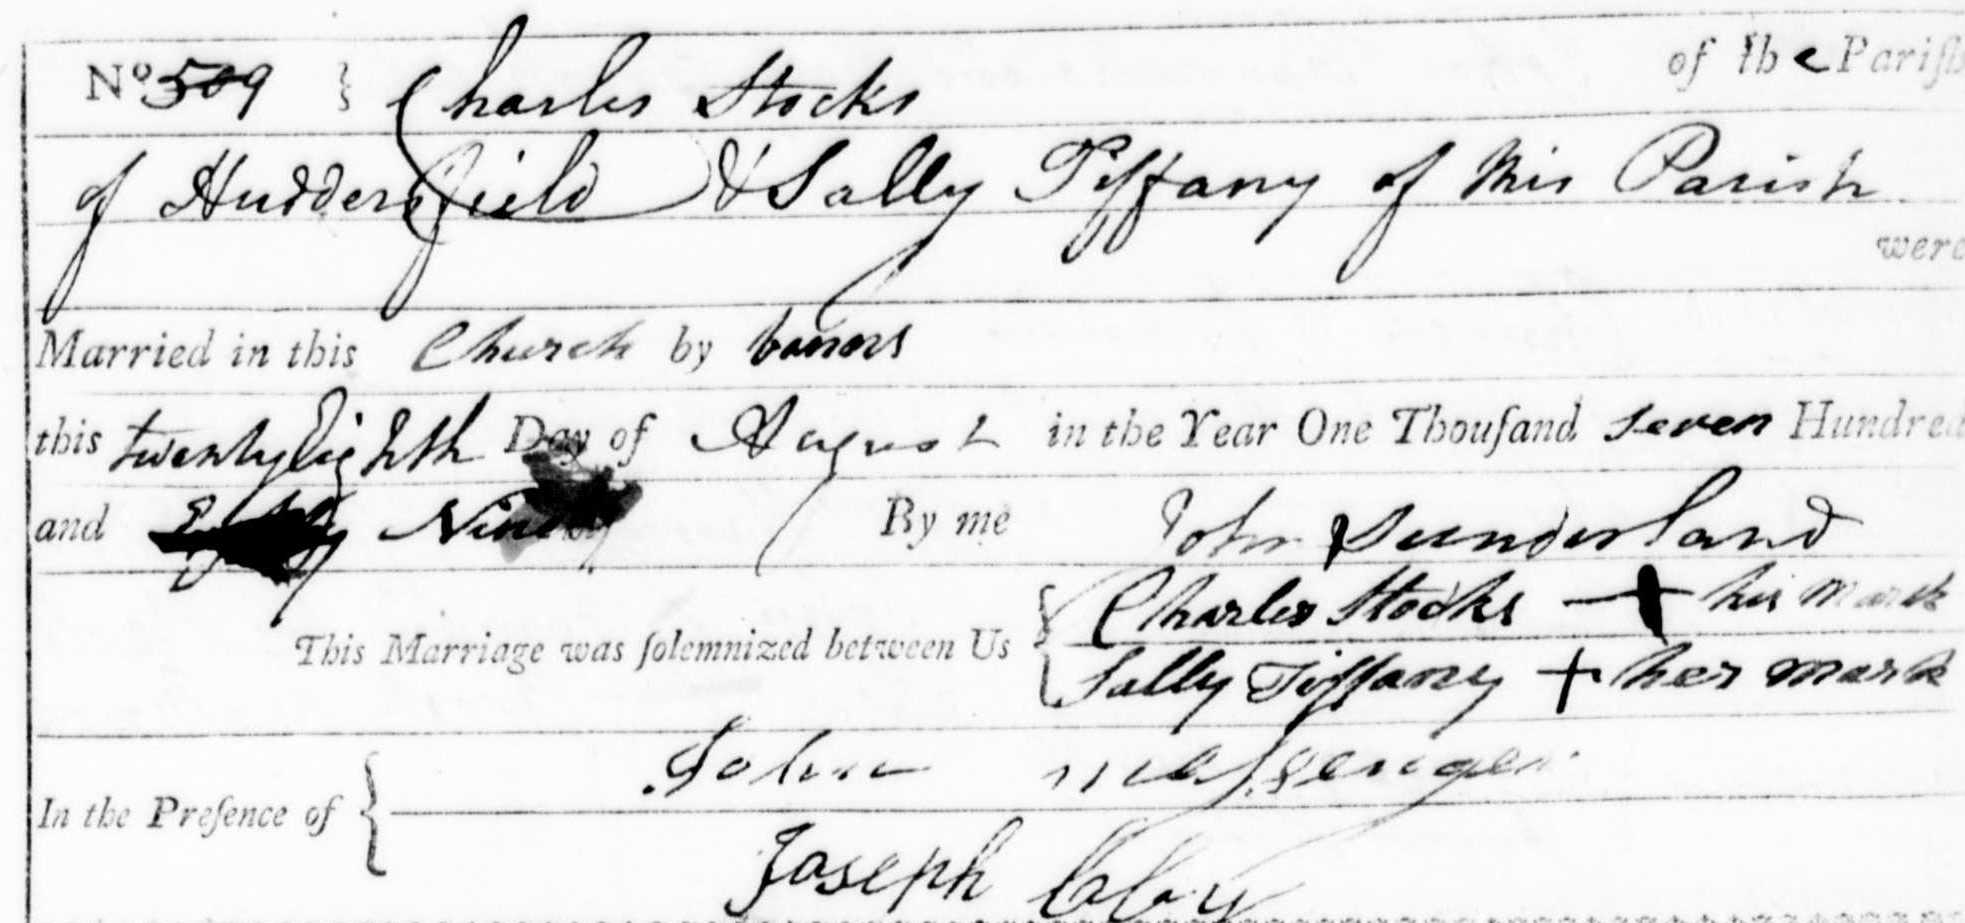 No 509 } Charles Stocks of the Parish
of Huddersfield & Sally Tiffany of this Parish
were
Married in this Church by banns
this twenty Eighth Day of August in the Year One Thouſand seven Hundred
and Ninety By me John Sunderland
This Marriage was ſolemnized between Us { Charles Stocks + his mark
Sally Tiffany + her mark
In the Preſence of { John Meſsenger
Joseph